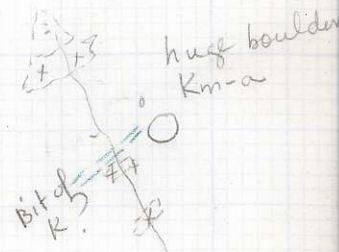 huge boulder
Km-a
Bit of
K.